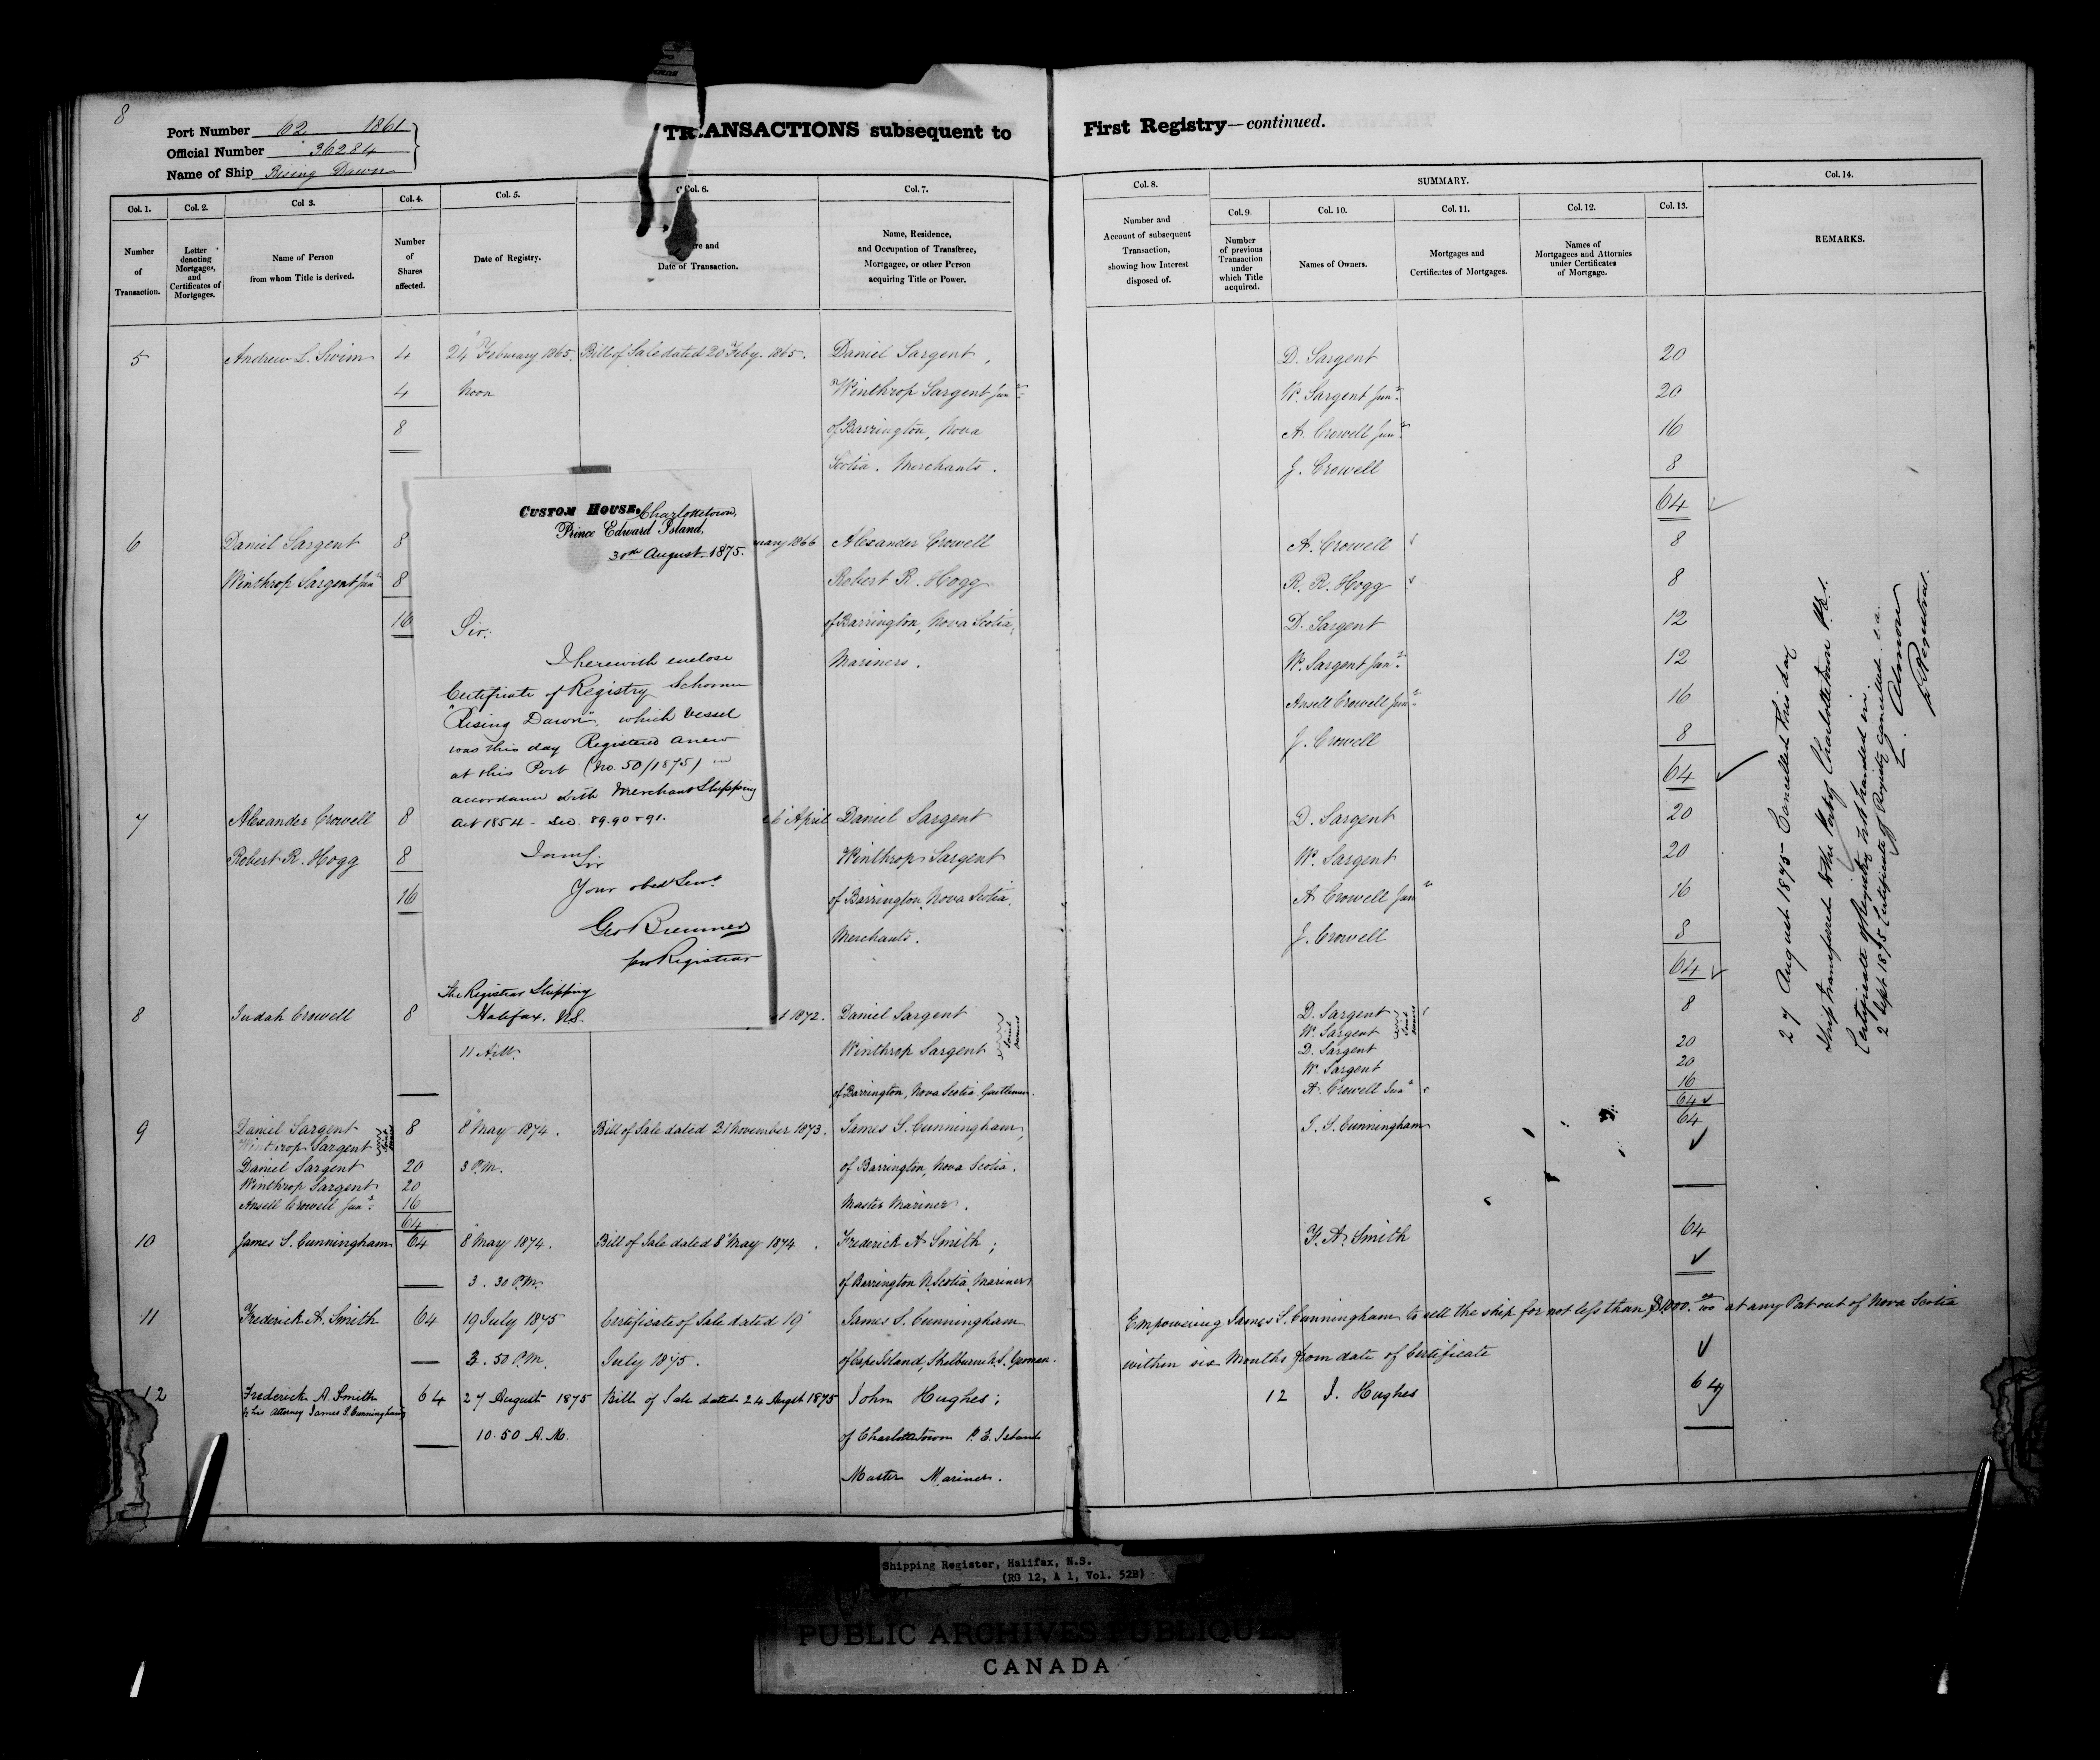 8
Port Number 62 1861
Official Number 36284
Name of Ship Rising Dawn
TRANSACTIONS subsequent to First Registry—continued.
Col. 1. Col. 2. Col 3. Col. 4. Col. 5. Col. 6. Col. 7. Col. 8. SUMMARY. Col. 14.
Col. 9. Col. 10. Col. 11. Col. 12. Col. 13.
Number of Transaction.
Letter denoting Mortgages, and Certificates of Mortgages.
Name of Person from whom Title is derived.
Number of Shares affected.
Date of Registry.
re and Date of Transaction.
Name, Residence, and Occupation of Transferee, Mortgagee, or other Person acquiring Title or Power.
Number and Account of subsequent Transaction, showing how Interest disposed of.
Number of previous Transaction under which Title acquired.
Names of Owners.
Mortgages and Certificates of Mortgages.
Names of Mortgagees and Attornies under Certificates of Mortgage.
REMARKS.
5 Andrew L. Swim 4 24" February 1865. Bill of Sale dated 20 Feby. 1865. Daniel Sargent, D. Sargent 20
4 Noon Winthrop Sargent Junr. W. Sargent Junr. 20
8 of Barrington, Nova A. Crowell Junr. 16
Scotia. Merchants. J. Crowell 8
64
6 Daniel Sargent 8 uary 1866 Alexander Crowell A. Crowell 8
Winthrop Sargent Junr 8 Robert R. Hogg R. R. Hogg 8
16 of Barrington, Nova Scotia, D. Sargent 12
Mariners. W. Sargent Junr. 12
Ansell Crowell Junr. 16
J. Crowell 8
64
7 Alexander Crowell 8 6" April Daniel Sargent D. Sargent 20
Robert R. Hogg 8 Winthrop Sargent W. Sargent 20
16 of Barrington, Nova Scotia. A Crowell Junr 16
Merchants. J. Crowell 8
64
8 Judah Crowell 8 st 1872. Daniel Sargent D. Sargent 8
W. Sargent
11 A.M. Winthrop Sargent Joint owners D. Sargent 20
W. Sargent 20
of Barrington, Nova Scotia. Gentlemen. A. Crowell Junr 16
64
9 Daniel Sargent 8 8" May 1874. Bill of Sale dated 21 November 1873. James S. Cunningham, J. S. Cunningham 64
Winthrop Sargent Joint owners
Daniel Sargent 20 3 P.M. of Barrington, Nova Scotia.
Winthrop Sargent 20
Ansell Crowell Junr. 16 Master Mariner.
64
10 James S. Cunningham 64 8" May 1874. Bill of Sale dated 8" May 1874. Frederick A Smith; F. A. Smith 64
3. 30 P.M. of Barrington N. Scotia, Mariner
11 Frederick A. Smith 64 19 July 1875 Certificate of Sale dated 19" James S. Cunningham Empowering James S. Cunningham to sell the ship for not less than $1000. 00/100 at any Port out of Nova Scotia
3. 50 P.M. July 1875. of Cape Island, Shelburne N.S. Yeoman. within six Months from date of Certificate
12 Frederick A. Smith 64 27 August 1875 Bill of Sale dated 24 Augst 1875 John Hughes; 12 J. Hughes 64
by his attorney James S. Cunningham
10.50 A.M. of Charlottetown P. E. Island
Master Mariner.
CUSTOM HOUSE, Charlottetown,
Prince Edward Island,
30th August 1875.
Sir,
I herewith enclose
Certificate of Registry Schooner
"Rising Dawn", which vessel
was this day Registered anew
at this Port (No. 50/1875) in
accordance with Merchant Shipping
Act 1854 - Sec. 89.90 & 91.
I am Sir
Your obedt Servt
Geo Bremner
for Registrar
The Registrar Shipping
Halifax. N.S.
27 August 1875 - Cancelled this day
Ship transferred to the Port of Charlottetown P.E.I.
Certificate of Registry not handed in.
2 Sept 1875 Certificate of Registry cancelled
Almon
Registrar.
Shipping Register, Halifax, N.S.
(RG 12, A 1, Vol. 52B)
PUBLIC ARCHIVES PUBLIQUES
CANADA